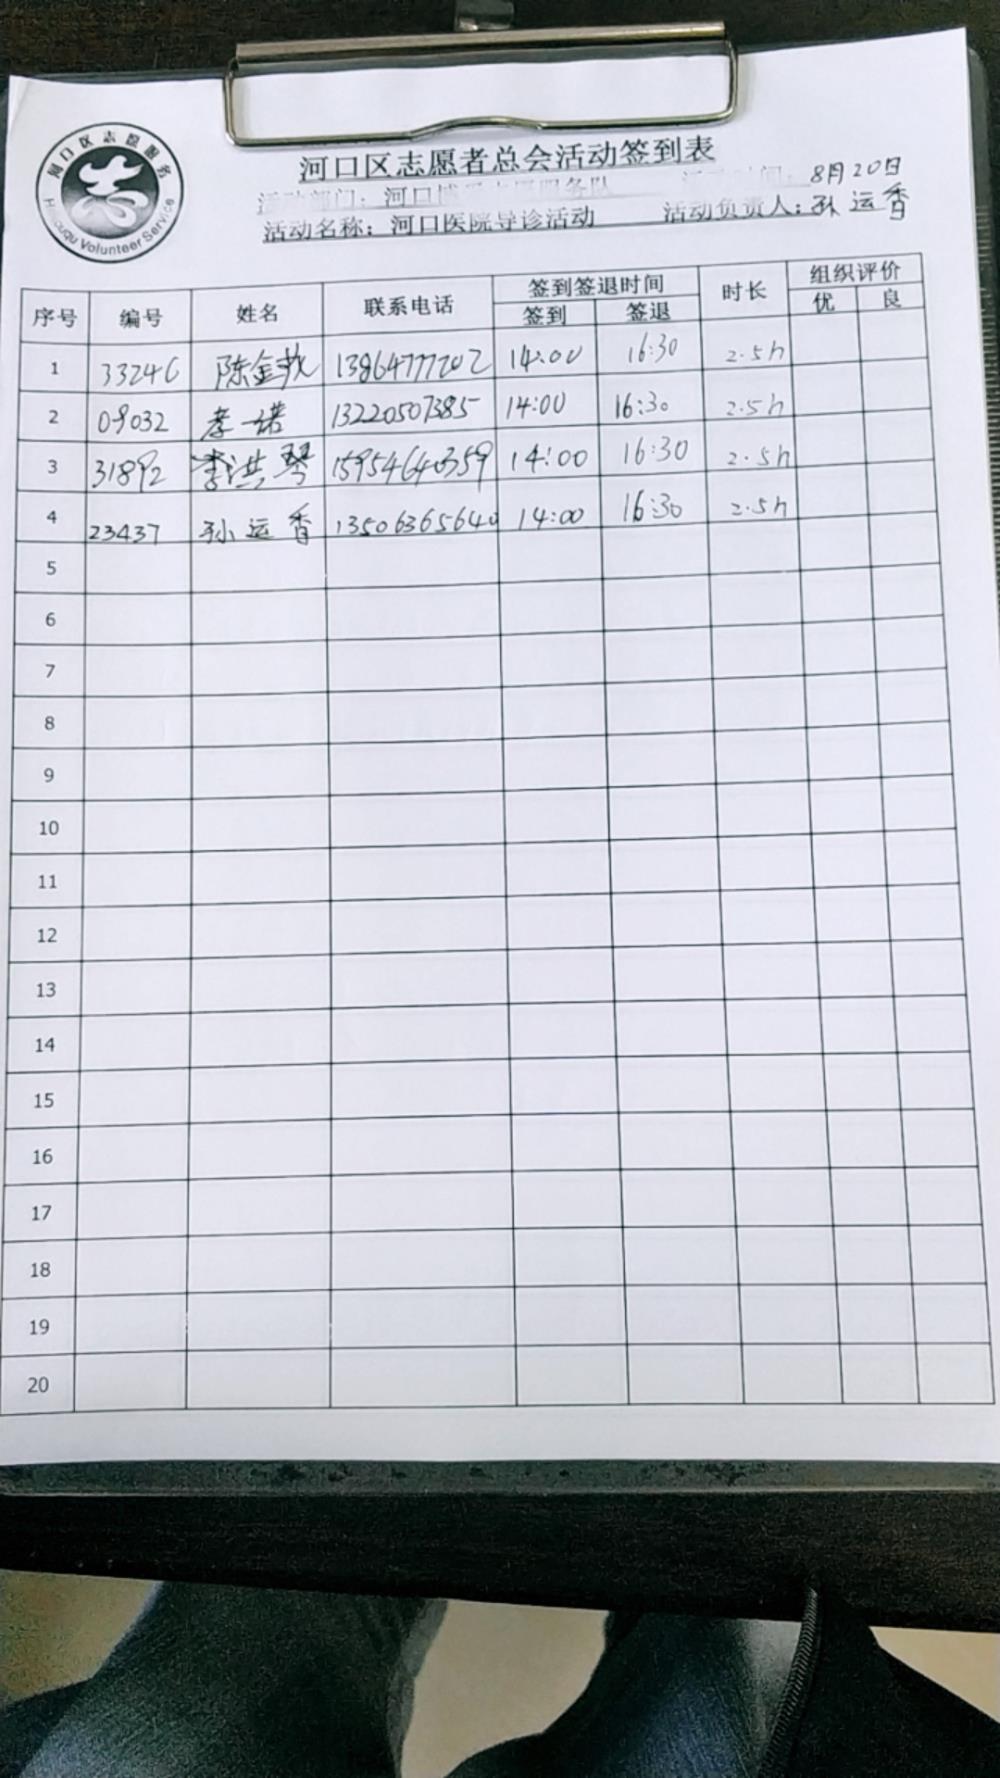 河口区志愿服务
Hekouqu Volunteer Service
河口区志愿者总会活动签到表
活动部门：河口 服务队 时间：8月20日
活动名称：河口医院导诊活动 活动负责人：孙运香
序号 编号 姓名 联系电话 签到签退时间 时长 组织评价
签到 签退 优 良
1 33246 陈金 13864777202 14:00 16:30 2.5h
2 09032 李诺 13220507385 14:00 16:30 2.5h
3 31892 李洪琴 15954640359 14:00 16:30 2.5h
4 23437 孙运香 13506365640 14:00 16:30 2.5h
5
6
7
8
9
10
11
12
13
14
15
16
17
18
19
20